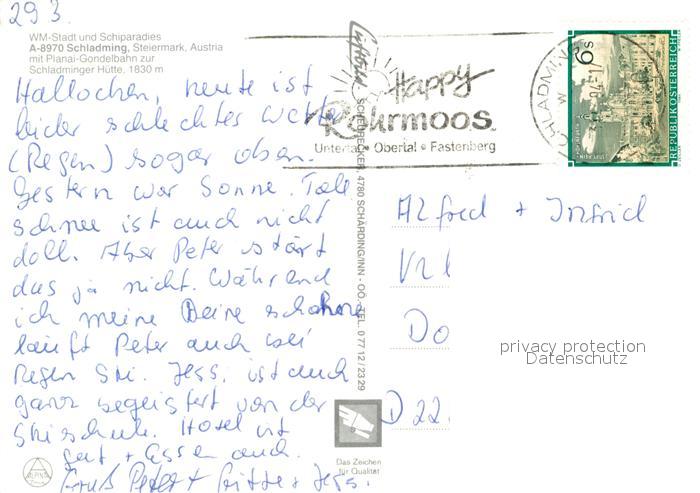 293.
WM-Stadt und Schiparadies
A-8970 Schladming, Steiermark, Austria
mit Planai-Gondelbahn zur
Schladminger Hütte, 1830 m
Hallochen, heute ist
leider schlechtes Wetter
(Regen) sogar oben.
Gestern war Sonne. Tal
schnee ist auch nicht
doll. Aber Peter stört
das ja nicht. Während
ich meine Beine schone
läuft Peter auch bei
Regen Ski. Jessi ist auch
ganz begeistert von der
Skischule. Hotel ist
gut + Essen auch.
Gruß Peter + + Jess.
Luftkurort
Happy
Rohrmoos
Untertal • Obertal • Fastenberg
SCHLADMING
6 S
REPUBLIK ÖSTERREICH
4780 SCHÄRDING/INN - OÖ., TEL. 0 77 12 / 23 29
Alfred + Ingrid
Do
D 22
privacy protection
Datenschutz
Das Zeichen
für Qualität
ALPINA